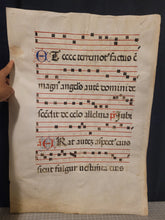 Et ecce terremot' factus e
magn' angelus aut domini de
scēdit de celo allelluia ps Jubi
Erat autez aspect' eius
sicut fulgur vestimēta eius